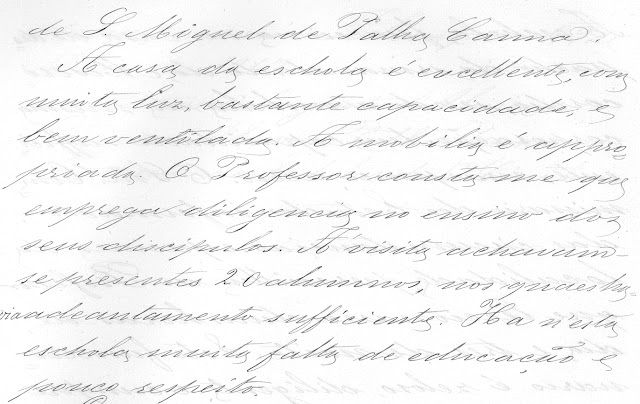 de S. Miguel de Palha Canna.
A casa da eschola é excellente, com
muita luz, bastante capacidade, e
bem ventilada. A mobilia é appro-
priada. O Professor consta-me que
emprega diligencia no ensino dos
seus discipulos. Á visita achavam-
se presentes 20 alumnos, nos quaes ha-
via adeantamento sufficiente. Ha n'esta
eschola muita falta de educação e
pouco respeito.